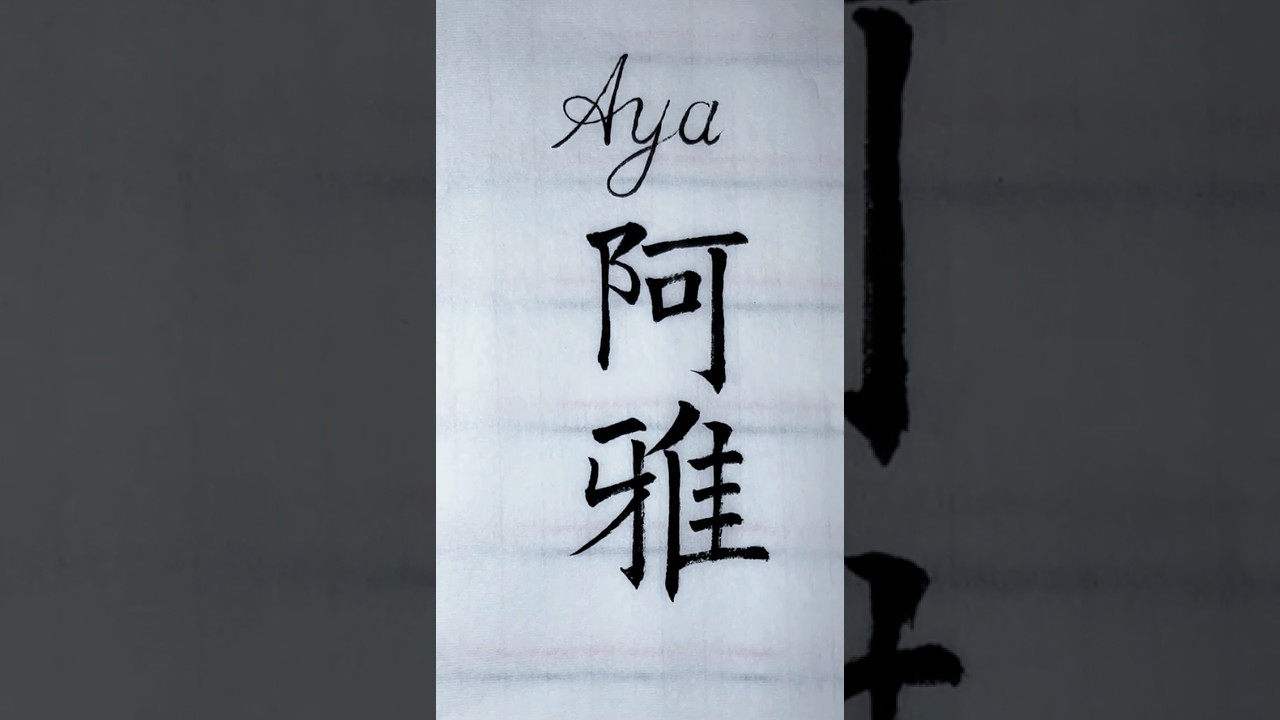 Aya
阿
雅